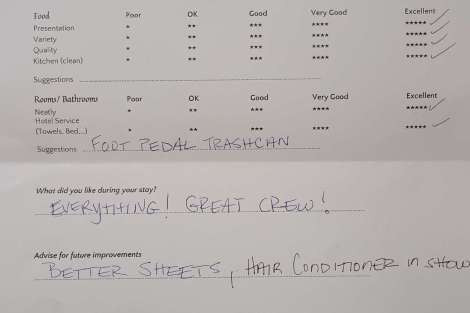 Food Poor OK Good Very Good Excellent
Presentation * ** *** **** *****
Variety * ** *** **** *****
Quality * ** *** **** *****
Kitchen (clean) * ** *** **** *****
Suggestions
Rooms/ Bathrooms Poor OK Good Very Good Excellent
Neatly * ** *** **** *****
Hotel Service
(Towels, Bed...) * ** *** **** *****
Suggestions FOOT PEDAL TRASHCAN
What did you like during your stay?
EVERYTHING! GREAT CREW!
Advise for future improvements
BETTER SHEETS, HAIR CONDITIONER in SHOW